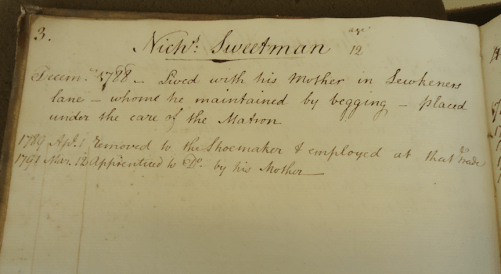 3.
Nichs. Sweetman
age
12
Decemr. 1788 - Lived with his Mother in Lewkeners
lane - whome he maintained by begging - placed
under the care of the Matron
1789 Apl. 1 Removed to the Shoemaker & employed at that trade
Mar. 12 Apprentised to Do. by his Mother